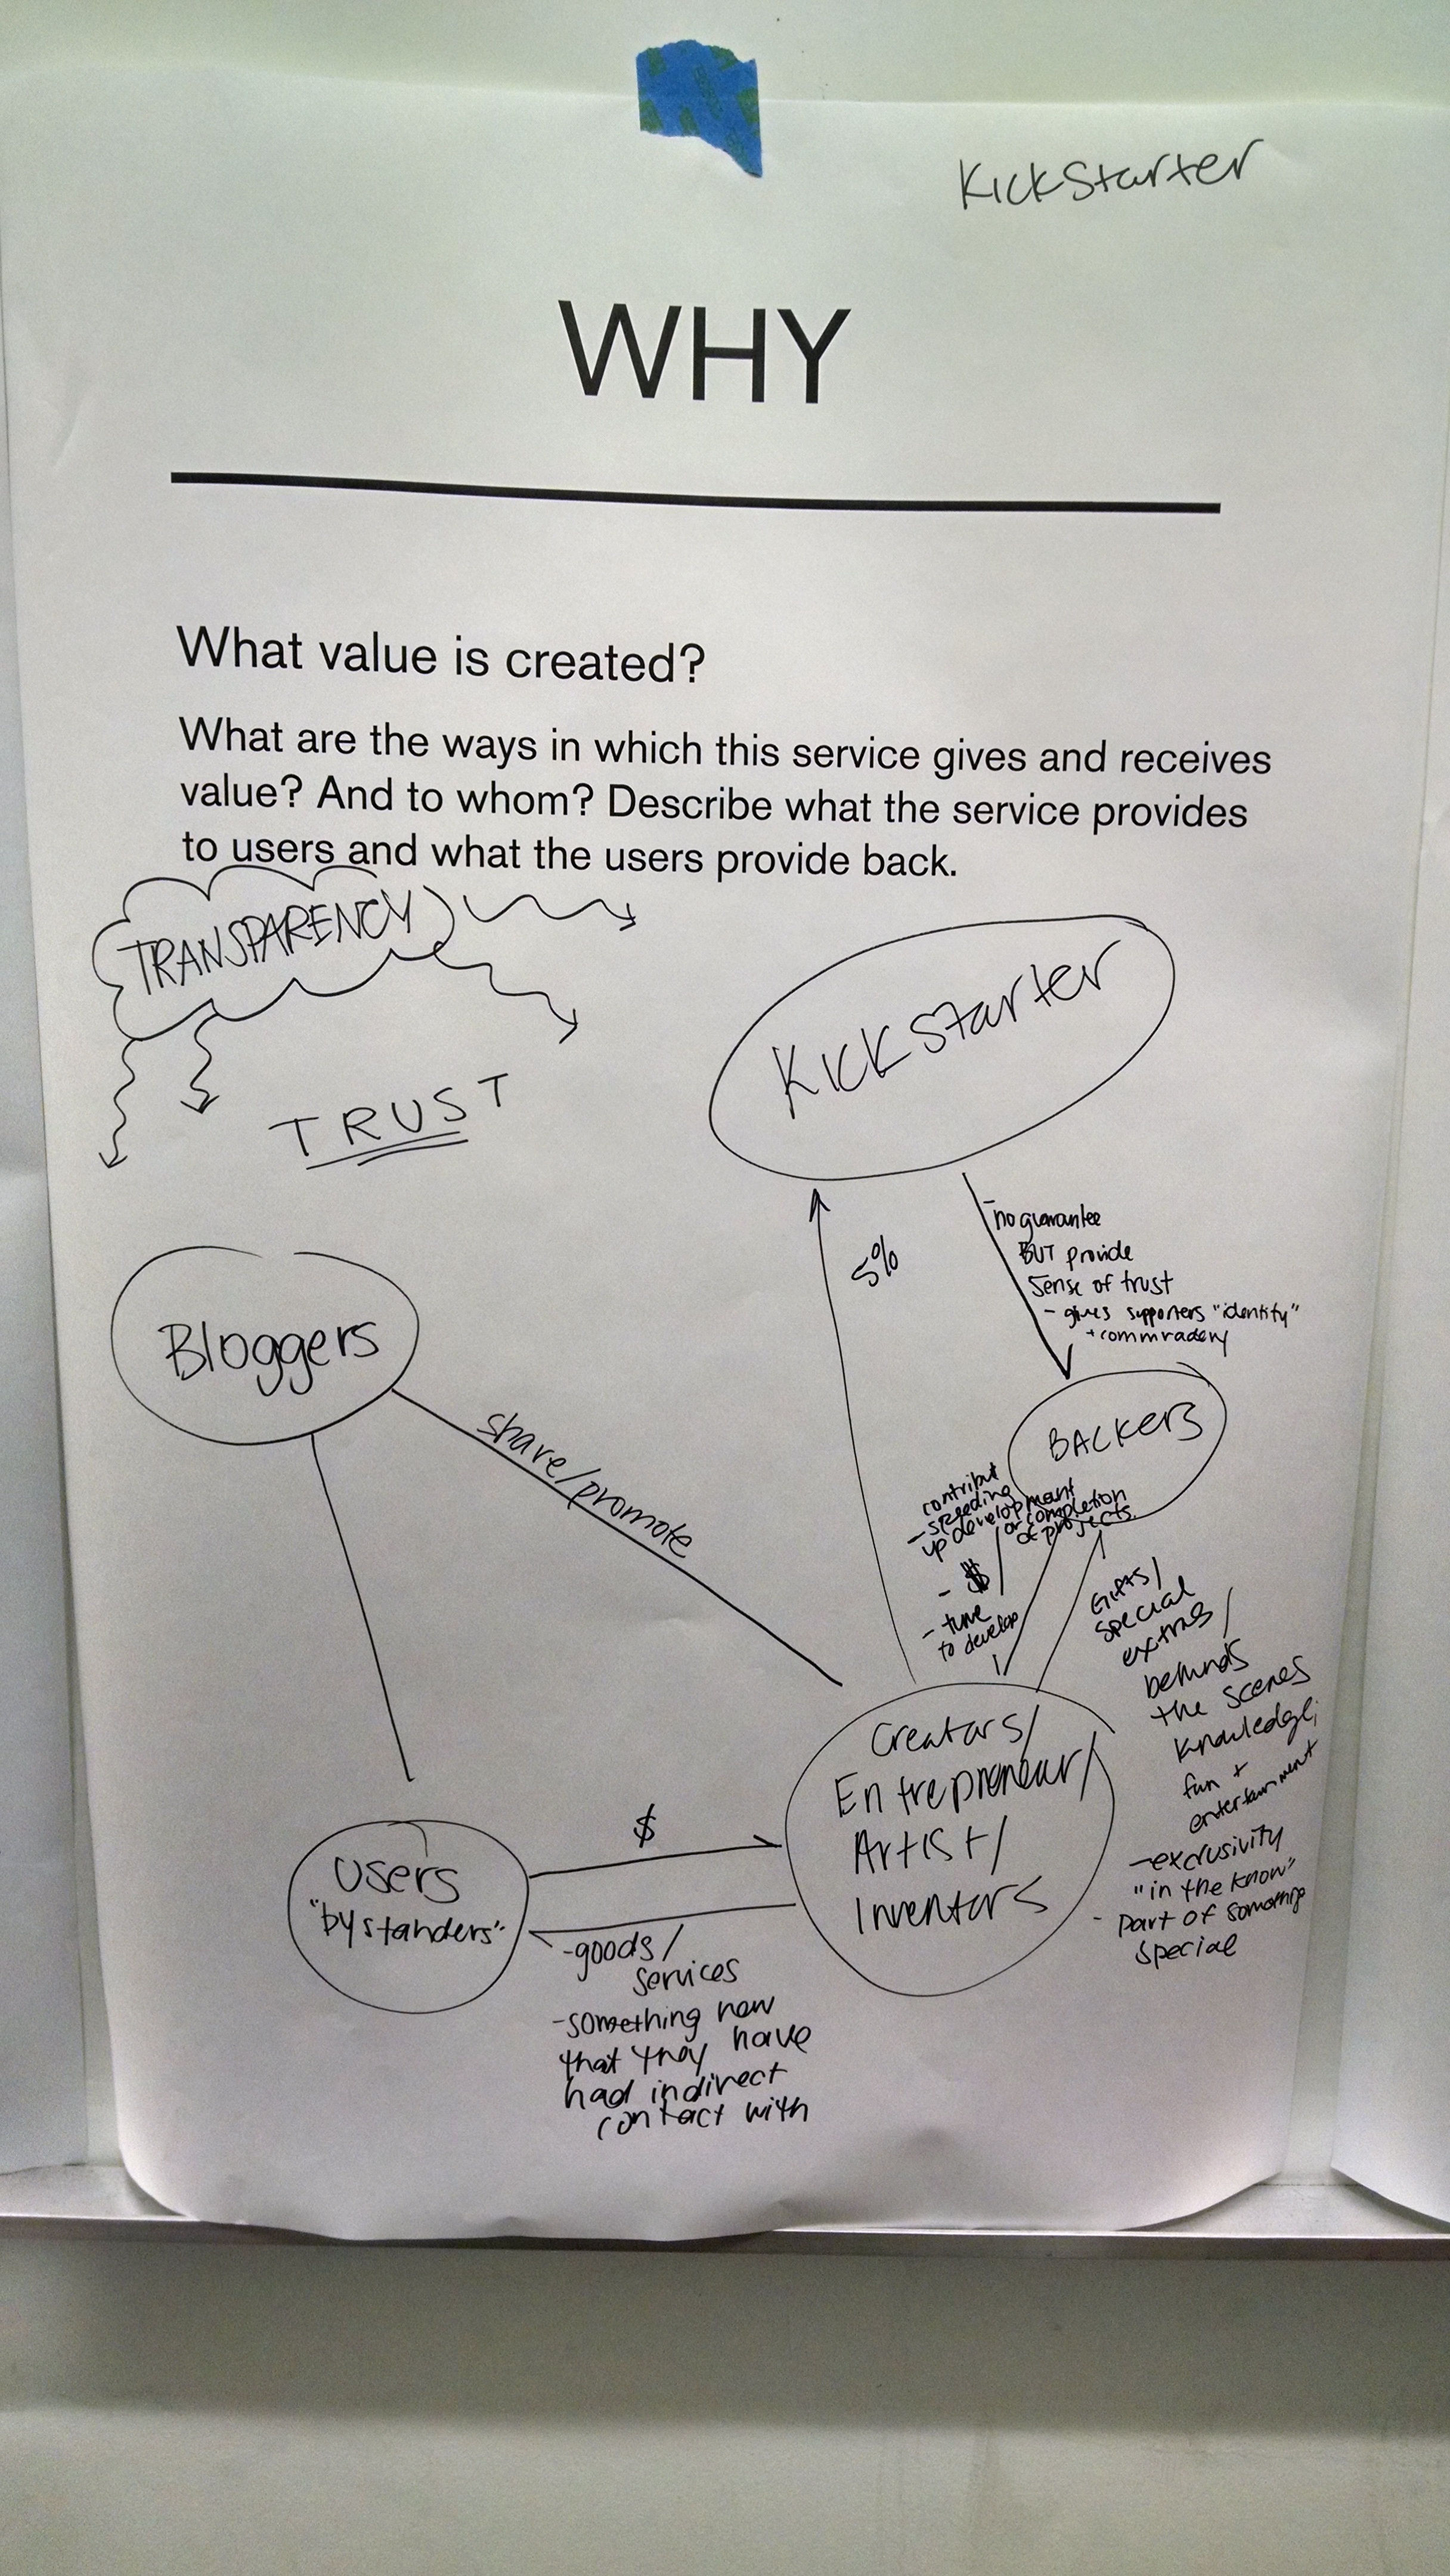 KickStarter
WHY
What value is created?
What are the ways in which this service gives and receives
value? And to whom? Describe what the service provides
to users and what the users provide back.
TRANSPARENCY
TRUST
KickStarter
5%
- no guarantee
BUT provide
Sense of trust
- gives supporters "identity"
+ commradery
Bloggers
share/promote
BACKERS
contribut
- speeding
up development
or completion
of projects.
- $
- time
to develop
Gifts/
special
extras/
behinds
the scenes
knowledge;
fun +
entertainment
- exclusivity
"in the know"
- part of something
special
Creators/
Entrepreneur/
Artist/
Inventors
$
Users
"bystanders"
- goods/
services
- something new
that they have
had indirect
contact with